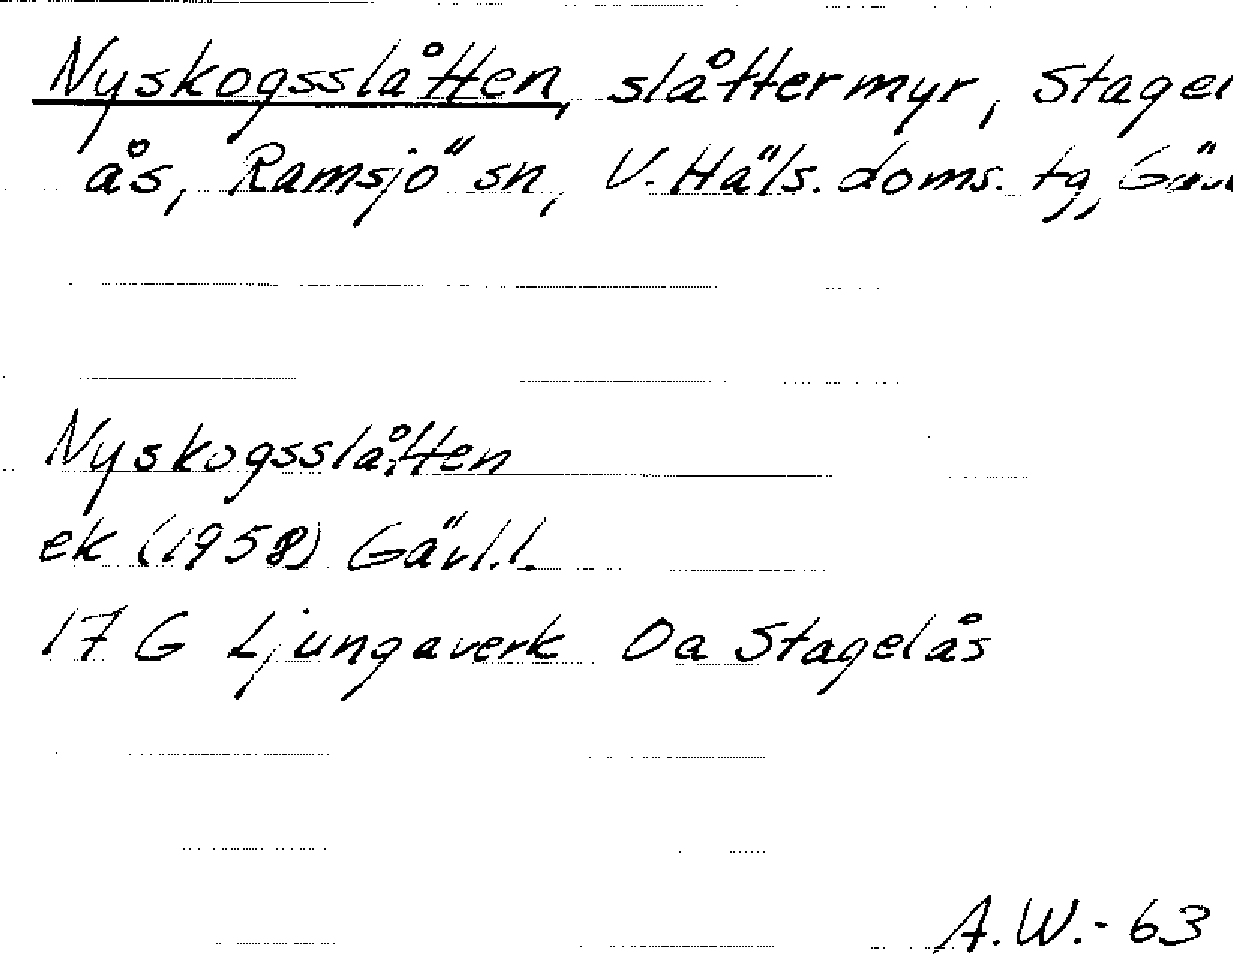 Nyskogsslåtten, slåttermyr, Stagel
ås, Ramsjö sn, V. Häls. doms. tg, Gäv
Nyskogsslåtten
ek (1958) Gävl.l.
17 G Ljungaverk Oa Stagelås
A.W.-63